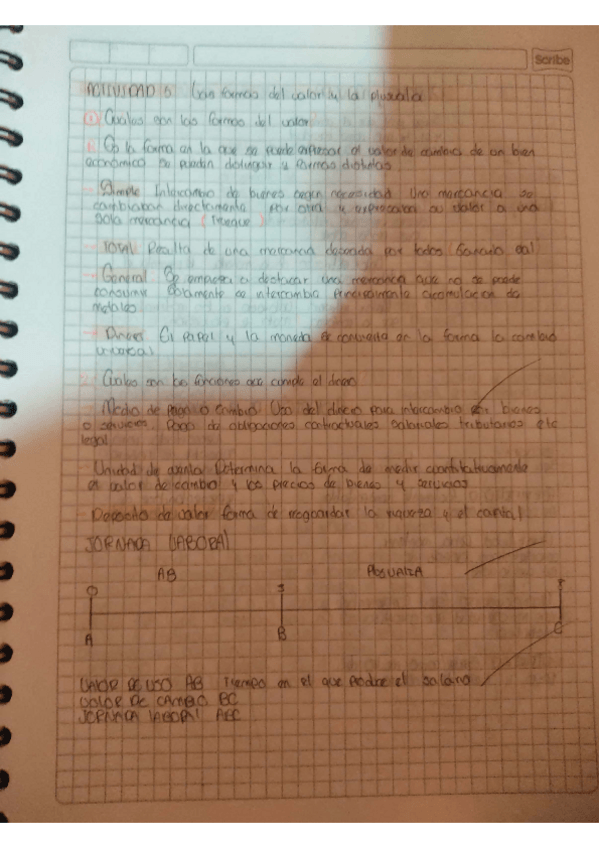 Scribe
ACTIVIDAD 5 Las formas del valor y la plusvalía
① Cuales son las formas del valor
Es la forma en la que se puede expresar el valor de cambio de un bien
económico se pueden distinguir 4 formas distintas
- Simple Intercambio de bienes según necesidad Una mercancía se
cambiaban directamente por otra y expresaba su valor a una
sola mercancía (Trueque)
- TOTAL de una mercancía por todos
- General Se empieza a destacar una mercancía que no se puede
consumir solamente se intercambia Principalmente de
metales
- Dinero El papel y la moneda se convierte en la forma
Cuales son las funciones que cumple el dinero
- Medio de Pago o cambio Uso del dinero para intercambio por bienes
o servicios Pago de obligaciones contractuales salariales tributarias etc
legal
- Unidad de cuenta Determina la forma de medir cuantitativamente
el valor de cambio y los precios de bienes y servicios
- Deposito de valor forma de resguardar la riqueza y el capital
JORNADA LABORAL
AB PLUSVALIA
0
A B C
VALOR DE USO AB Tiempo en el que produce el salario
VALOR DE CAMBIO BC
JORNADA LABORAL ABC